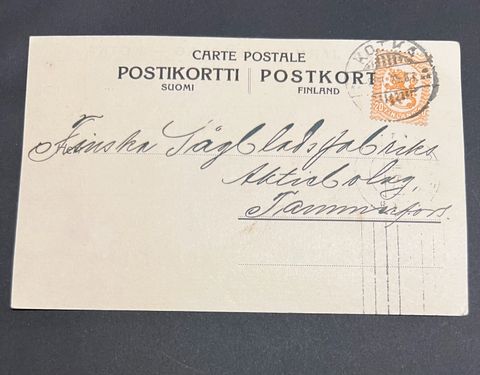 CARTE POSTALE
POSTIKORTTI | POSTKORT
SUOMI FINLAND
KOTKA
Finska Sågbladsfabriks
Aktiebolag,
Tammerfors.